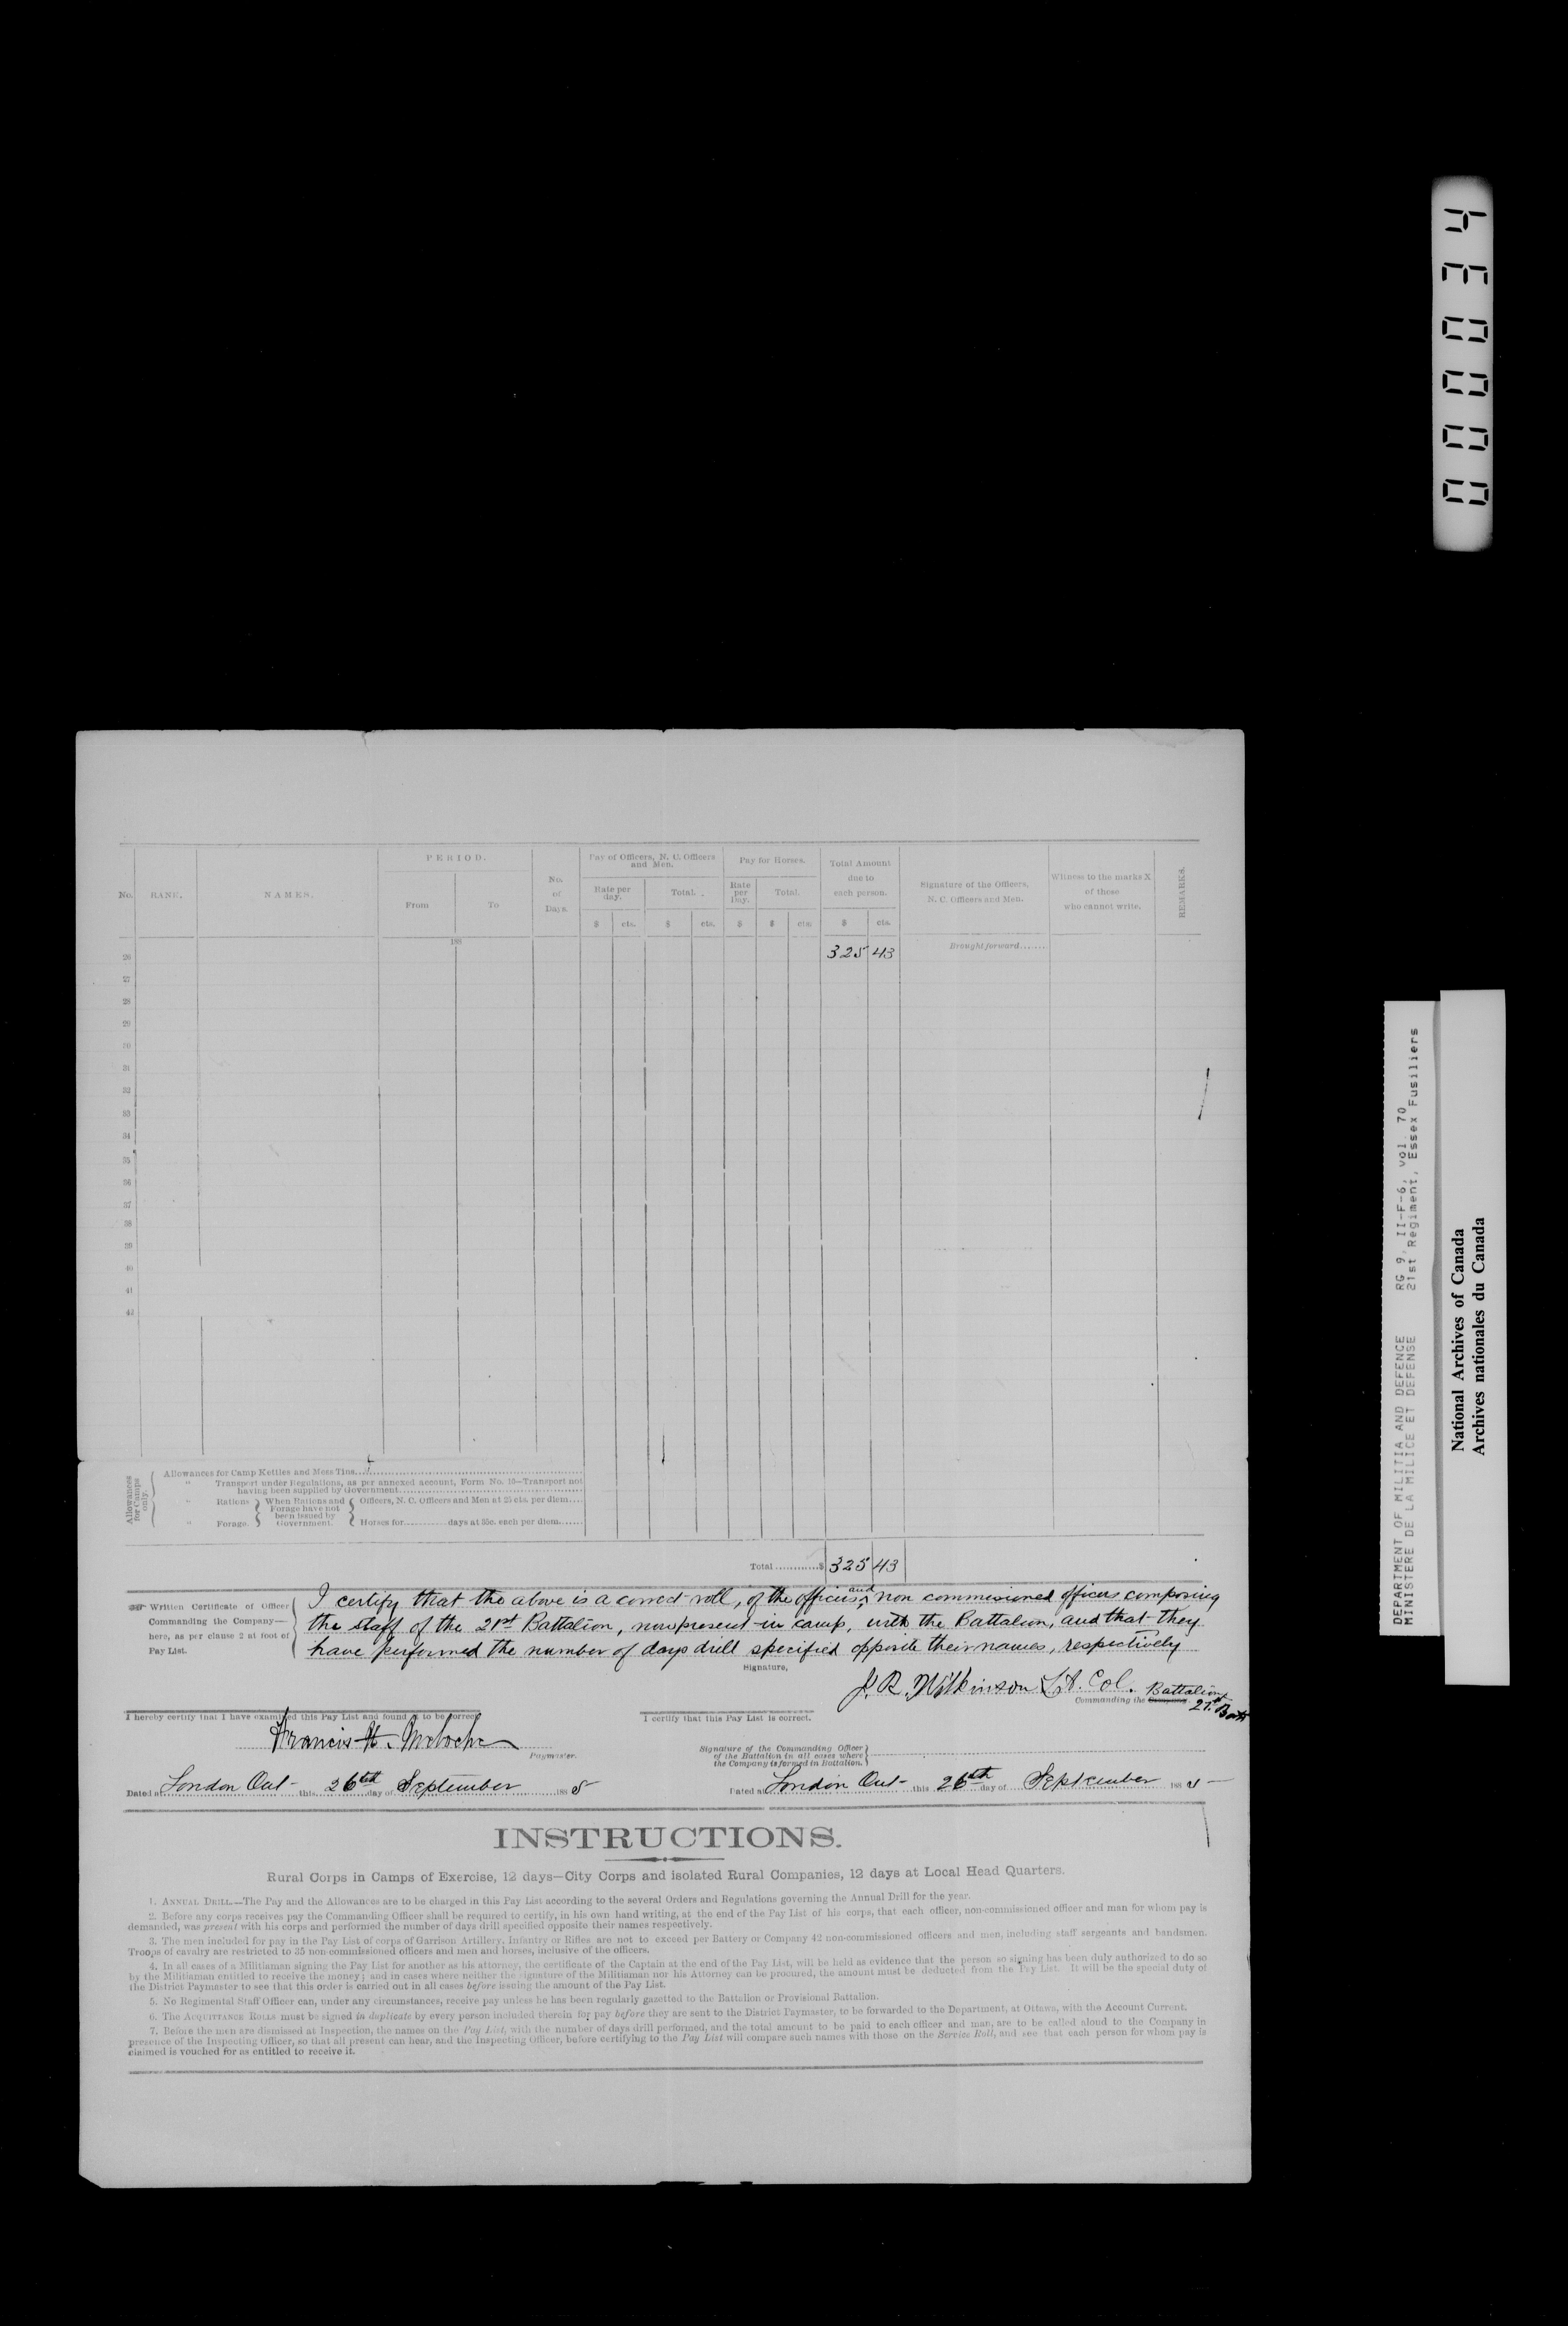 PERIOD.
Pay of Officers, N. C. Officers and Men.
Pay for Horses.
Total Amount due to each person.
No.
RANK.
NAMES.
From
To
No. of Days.
Rate per day.
Total.
Rate per Day.
Total.
Signature of the Officers, N. C. Officers and Men.
Witness to the marks X of those who cannot write.
REMARKS.
$ cts. $ cts. $ $ cts. $ cts.
188
325 43 Brought forward.......
26
27
28
29
30
31
32
33
34
35
36
37
38
39
40
41
42
Allowances for Camps only.
Allowances for Camp Kettles and Mess Tins
" Transport under Regulations, as per annexed account, Form No. 10—Transport not
having been supplied by Government
" Rations } When Rations and Forage have not been issued by Government. { Officers, N. C. Officers and Men at 25 cts. per diem....
" Forage. } Horses for............days at 35c. each per diem......
Total ............$ 325 43
Written Certificate of Officer
Commanding the Company—
here, as per clause 2 at foot of
Pay List.
I certify that the above is a correct roll, of the officers, and non commissioned officers composing
the staff of the 21st Battalion, now present in camp, with the Battalion, and that they
have performed the number of days drill specified opposite their names, respectively
Signature,
J. R. Wilkinson Lt. Col.
Commanding the Company. Battalion
21st Batt
I hereby certify that I have examined this Pay List and found it to be correct
Francis H. Meloche
Paymaster.
I certify that this Pay List is correct.
Signature of the Commanding Officer
of the Battalion in all cases where
the Company is formed in Battalion.
Dated at London Ont this 26th day of September 1885
Dated at London Ont this 26th day of September 1885
INSTRUCTIONS.
Rural Corps in Camps of Exercise, 12 days—City Corps and isolated Rural Companies, 12 days at Local Head Quarters.
1. ANNUAL DRILL.—The Pay and the Allowances are to be charged in this Pay List according to the several Orders and Regulations governing the Annual Drill for the year.
2. Before any corps receives pay the Commanding Officer shall be required to certify, in his own hand writing, at the end of the Pay List of his corps, that each officer, non-commissioned officer and man for whom pay is
demanded, was present with his corps and performed the number of days drill specified opposite their names respectively.
3. The men included for pay in the Pay List of corps of Garrison Artillery, Infantry or Rifles are not to exceed per Battery or Company 42 non-commissioned officers and men, including staff sergeants and bandsmen.
Troops of cavalry are restricted to 35 non-commissioned officers and men and horses, inclusive of the officers.
4. In all cases of a Militiaman signing the Pay List for another as his attorney, the certificate of the Captain at the end of the Pay List, will be held as evidence that the person so signing has been duly authorized to do so
by the Militiaman entitled to receive the money; and in cases where neither the signature of the Militiaman nor his Attorney can be procured, the amount must be deducted from the Pay List. It will be the special duty of
the District Paymaster to see that this order is carried out in all cases before issuing the amount of the Pay List.
5. No Regimental Staff Officer can, under any circumstances, receive pay unless he has been regularly gazetted to the Battalion or Provisional Battalion.
6. The ACQUITTANCE ROLLS must be signed in duplicate by every person included therein for pay before they are sent to the District Paymaster, to be forwarded to the Department, at Ottawa, with the Account Current.
7. Before the men are dismissed at Inspection, the names on the Pay List, with the number of days drill performed, and the total amount to be paid to each officer and man, are to be called aloud to the Company in
presence of the Inspecting Officer, so that all present can hear, and the Inspecting Officer, before certifying to the Pay List will compare such names with those on the Service Roll, and see that each person for whom pay is
claimed is vouched for as entitled to receive it.
000034
DEPARTMENT OF MILITIA AND DEFENCE RG 9, II-F-6, vol. 70
MINISTERE DE LA MILICE ET DEFENSE 21st Regiment, Essex Fusiliers
National Archives of Canada
Archives nationales du Canada